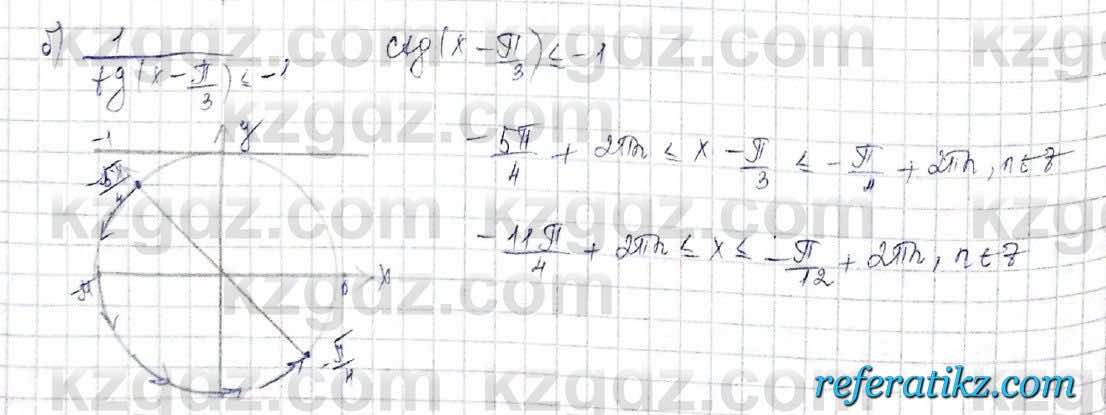 б) 1/tg(x - π/3) ≤ -1
ctg(x - π/3) ≤ -1
-5π/4 + 2πn ≤ x - π/3 ≤ -π/4 + 2πn, n ∈ Z
-11π/4 + 2πn ≤ x ≤ -π/12 + 2πn, n ∈ Z
-1
y
-5π/4
-π
0
x
-π/4
kzgdz.com
referatikz.com